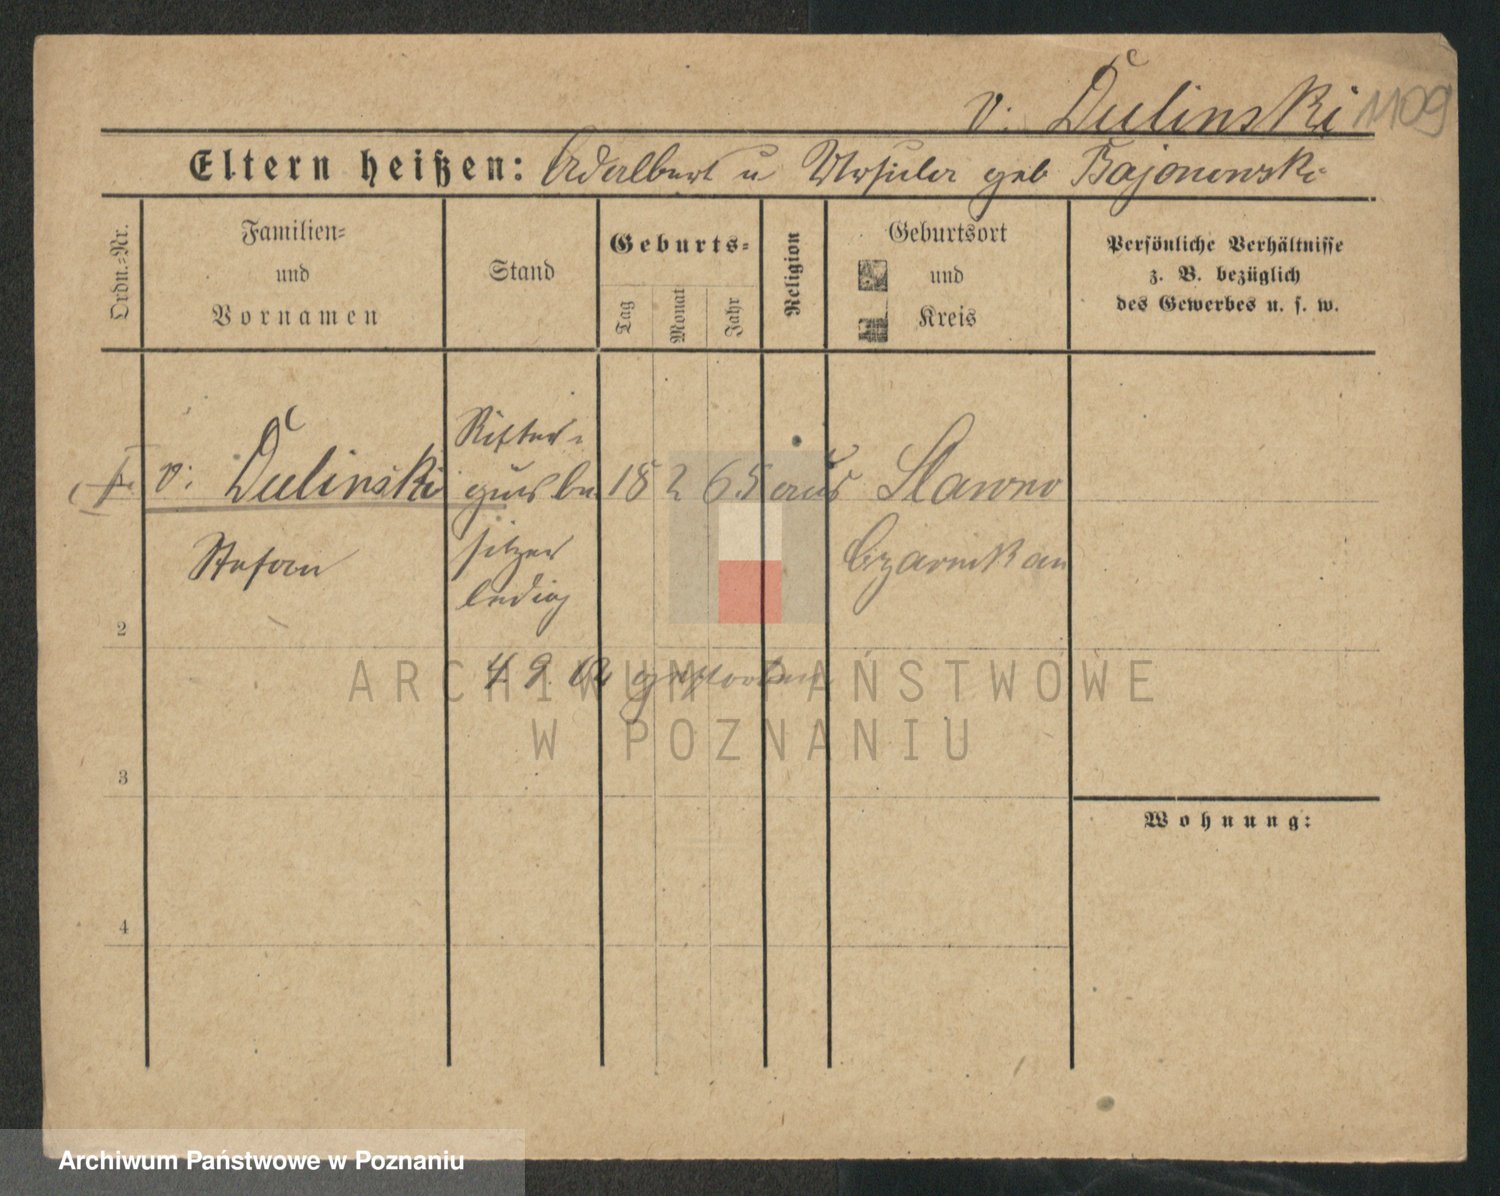 v. Dulinski 1109
Eltern heißen: Adalbert u Ursula geb Bajonowski
Ordn.-Nr.
Familien-
und
Vornamen
Stand
Geburts-
Tag
Monat
Jahr
Religion
Geburtsort
und
Kreis
Persönliche Verhältnisse
z. B. bezüglich
des Gewerbes u. s. w.
v. Dulinski
Stefan
Ritter-
gutsbe
sitzer
ledig
18 2 65
Slawno
Czarnikau
2
4. 9. 02 gestorben
3
Wohnung:
4
ARCHIWUM PAŃSTWOWE
W POZNANIU
Archiwum Państwowe w Poznaniu